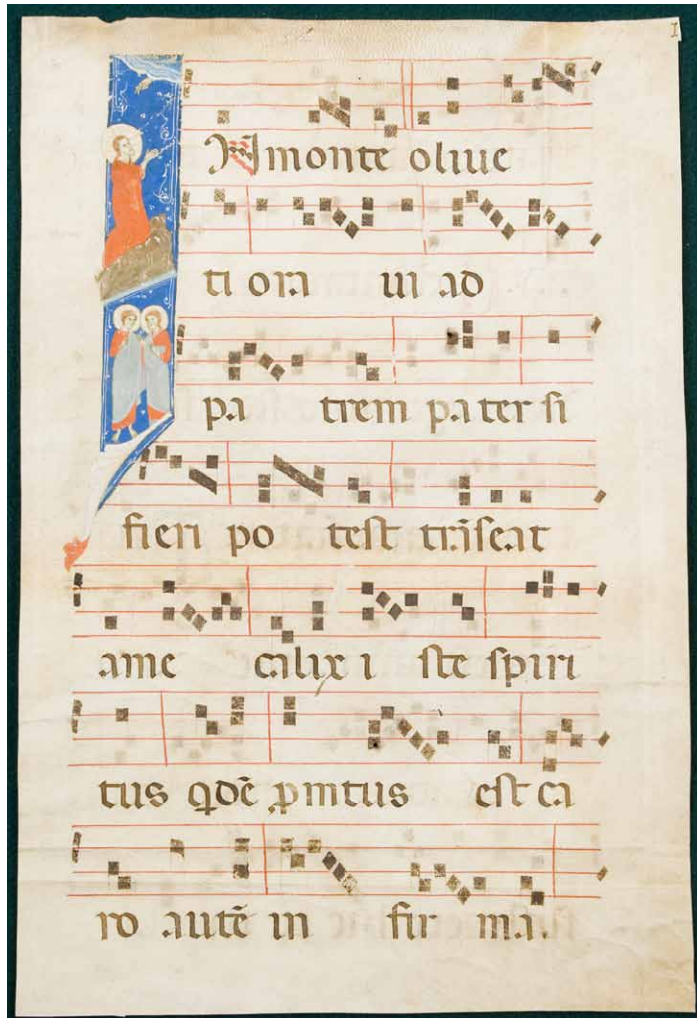 I
IN monte oliue
ti ora ui ad
pa trem pater si
fieri po test trãseat
ame calix i ste spiri
tus qdẽ ꝓmtus est ca
ro autẽ in fir ma.